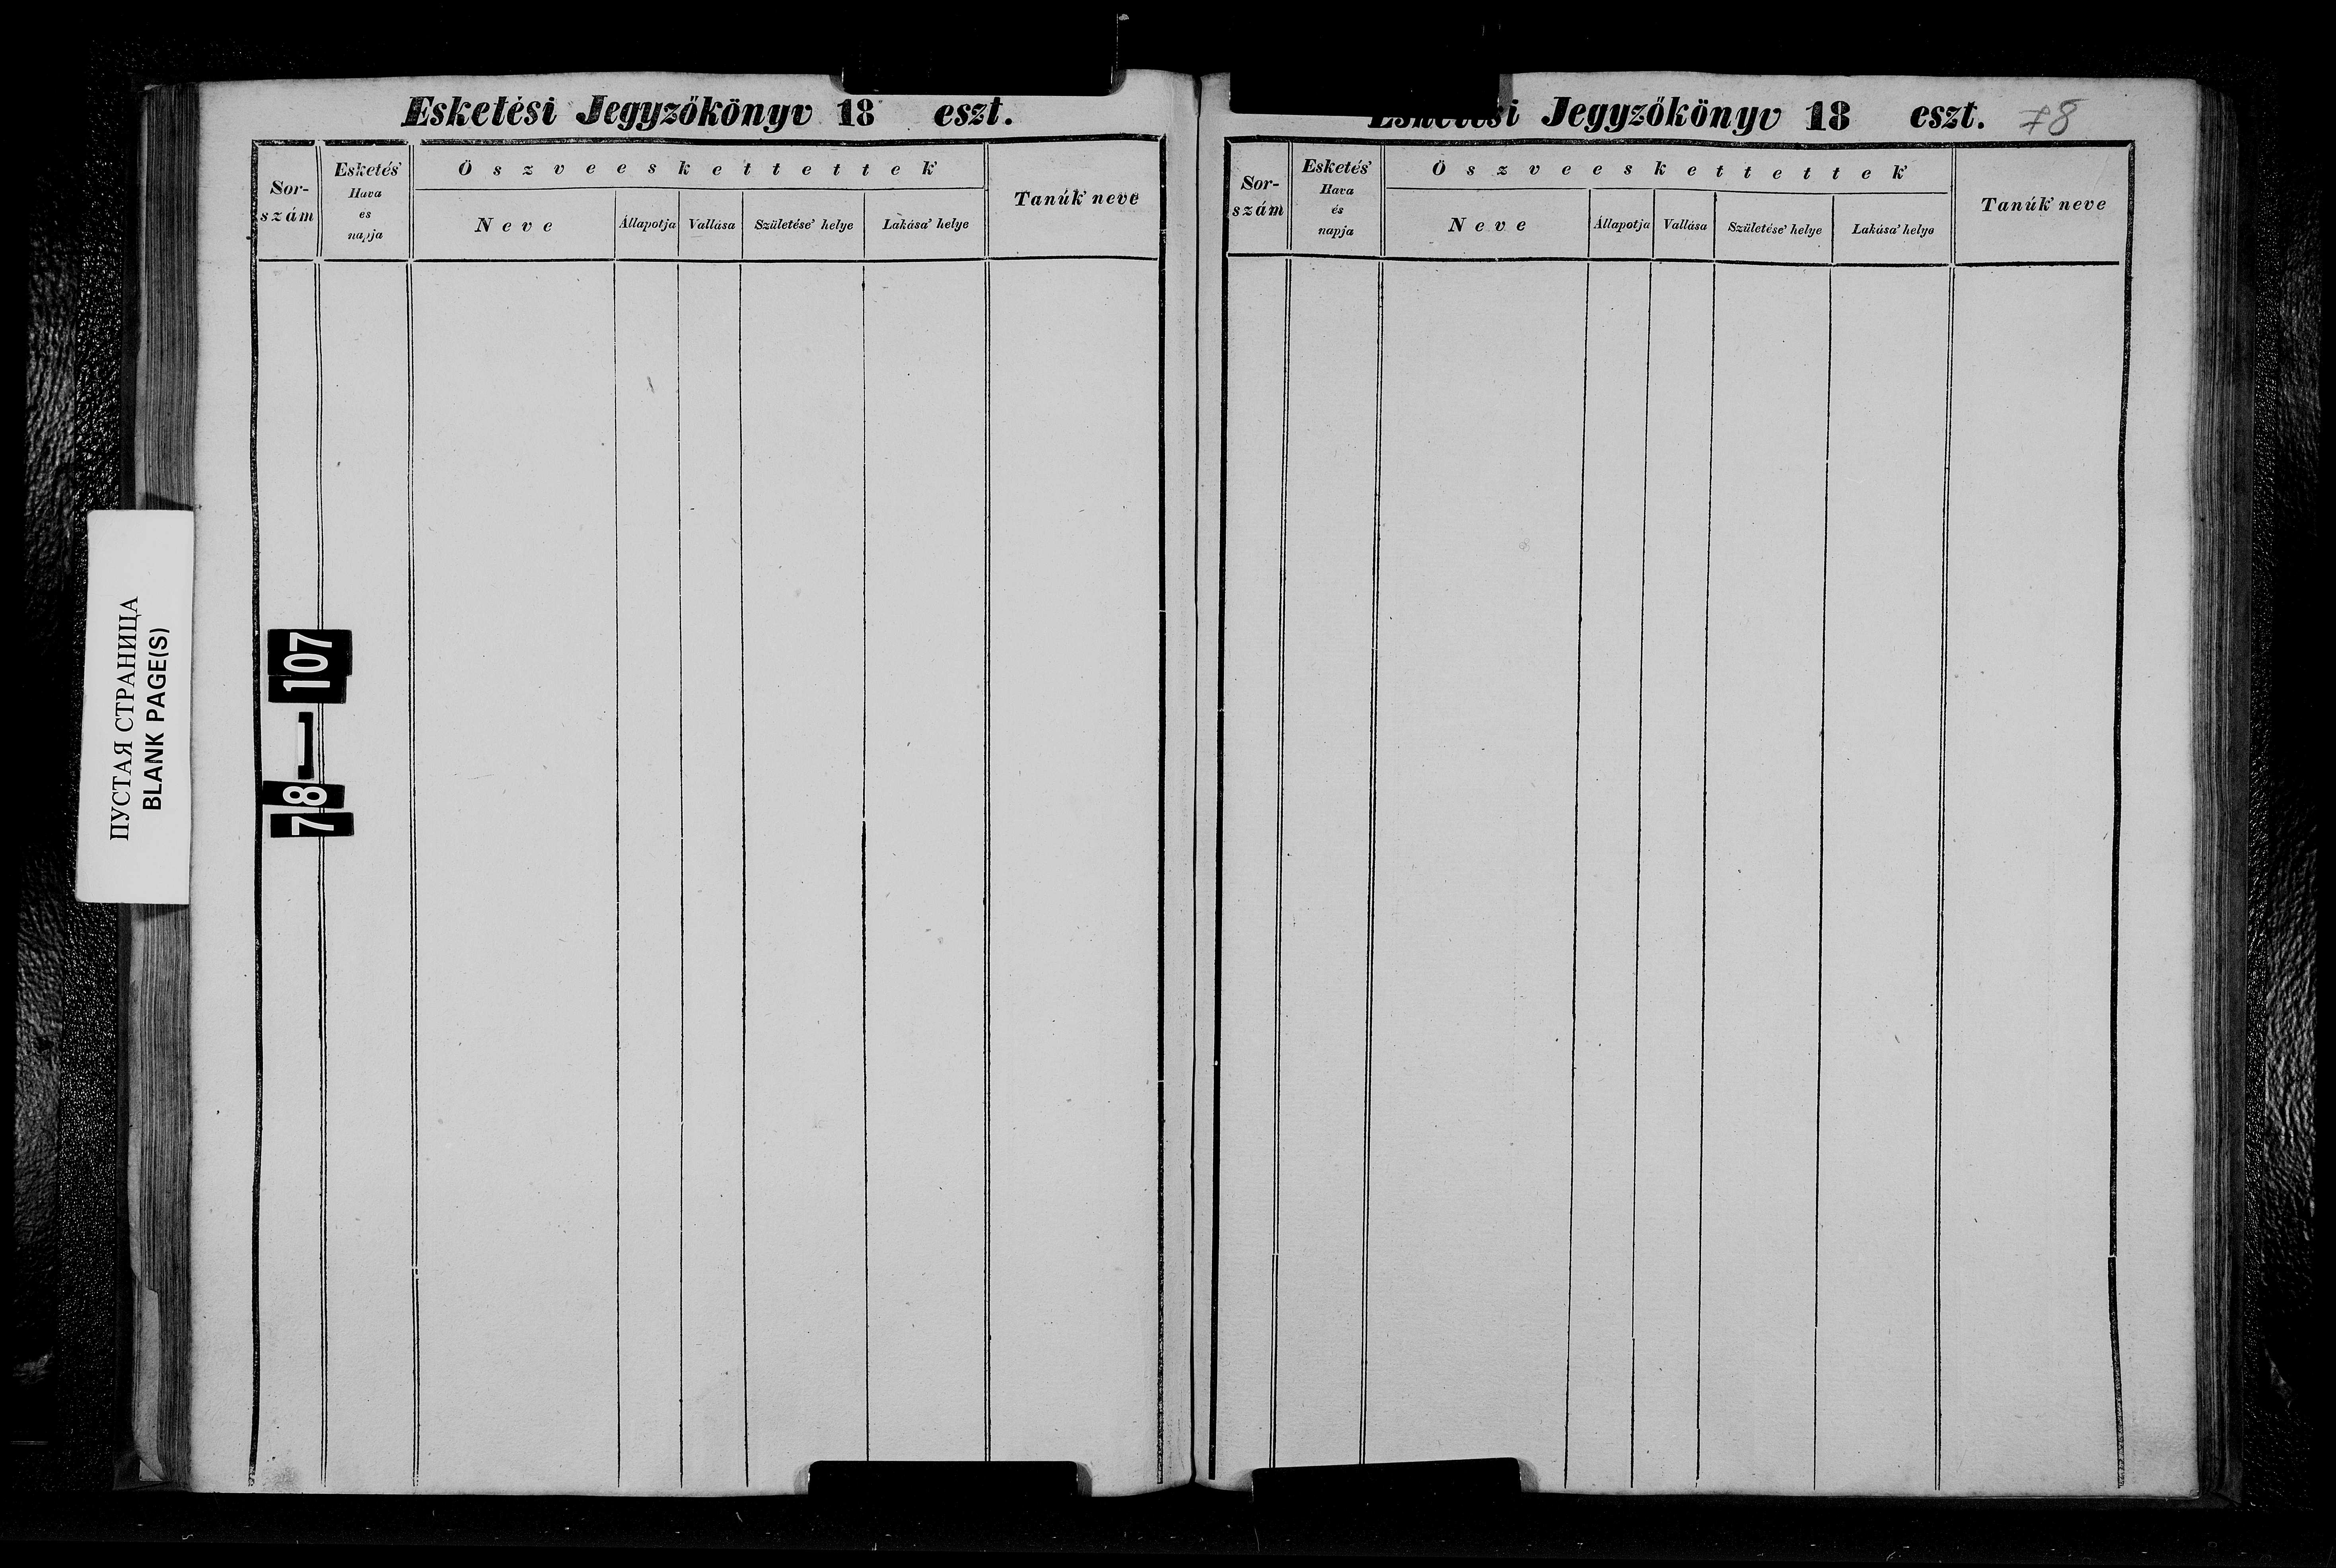 Esketési Jegyzőkönyv 18 eszt.
Sor-
szám
Esketés'
Hava
es
napja
Öszveeskettettek
Neve
Állapotja
Vallása
Születése' helye
Lakása' helye
Tanúk' neve
ПУСТАЯ СТРАНИЦА
BLANK PAGE(S)
78—107
Esketési Jegyzőkönyv 18 eszt. 78
Sor-
szám
Esketés'
Hava
és
napja
Öszveeskettettek
Neve
Állapotja
Vallása
Születése' helye
Lakása' helye
Tanúk' neve